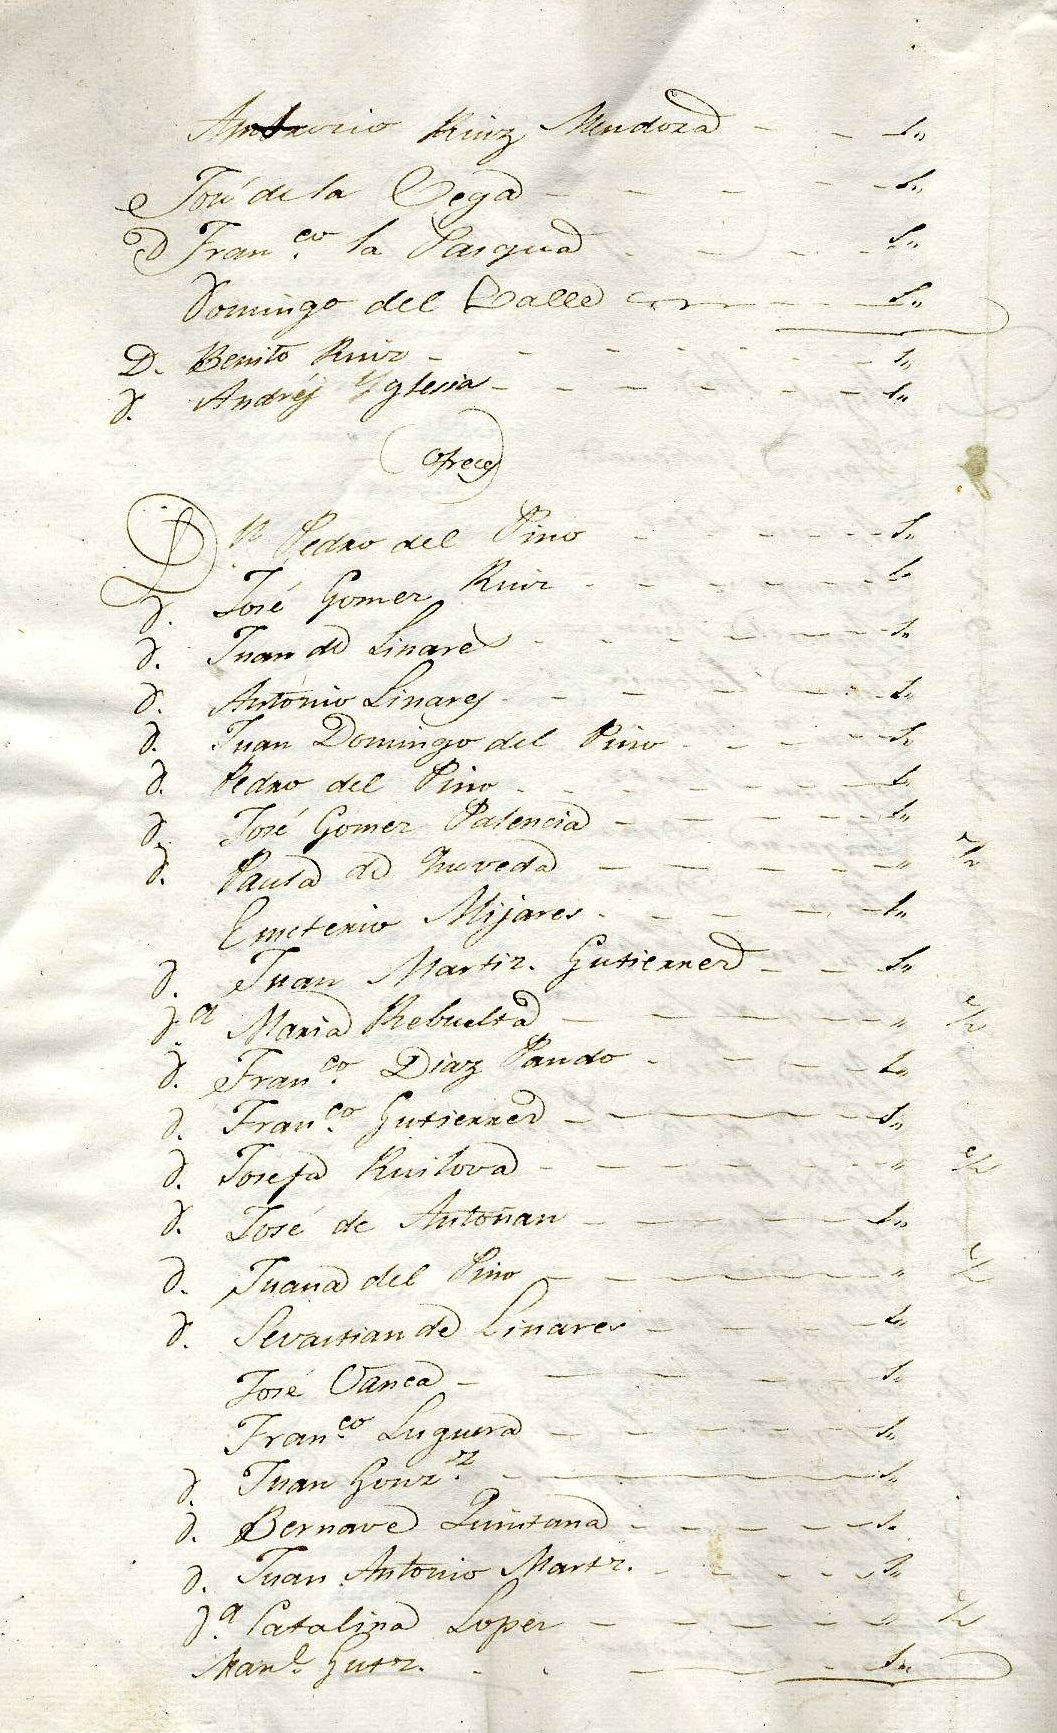 Antonio Ruiz Mendoza - - 1,,
José de la Vega - - - - - 1,,
D Fran.co la Pasqua - - - - 1,,
Domingo del Valle 1,,
D. Benito Ruiz - - - - - - 1,,
d. Andrés Yglesia - - - - - - 1,,
Ofreces
Dn Pedro del Pino - - - - - 1,,
d. José Gomez Ruiz - - - - - 1,,
d. Juan de Linares - - - - - 1,,
d. Antonio Linares - - - - - 1,,
d. Juan Domingo del Pino - - - - 1,,
d. Pedro del Pino - - - - - - 1,,
d. José Gomez Palencia - - - - - 1,,
d. Paula de Queveda - - - - - ,, 1/2
Emeterio Mijares - - - - - 1,,
d. Juan Martiz. Gutierrez - - - 1,,
d.a Maria Rebuelta - - - - - ,, 1/2
d. Fran.co Diaz Pando - - - - 1,,
d. Fran.co Gutierrez - - - - - 1,,
d. Josefa Ruilova - - - - - ,, 1/2
d. José de Antoñan - - - - - 1,,
d. Juana del Pino - - - - - ,, 1/2
d. Sevastian de Linares - - - - 1,,
José Vanca - - - - - 1,,
Fran.co Luguera - - - - - 1,,
d. Juan Gonz.z - - - - - 1,,
d. Bernave Quintana - - - - - 1,,
d. Juan Antonio Martz. - - - - - 1,,
d.a Catalina Lopez - - - - - ,, 1/2
Man.l Gutz. - - - - 1,,